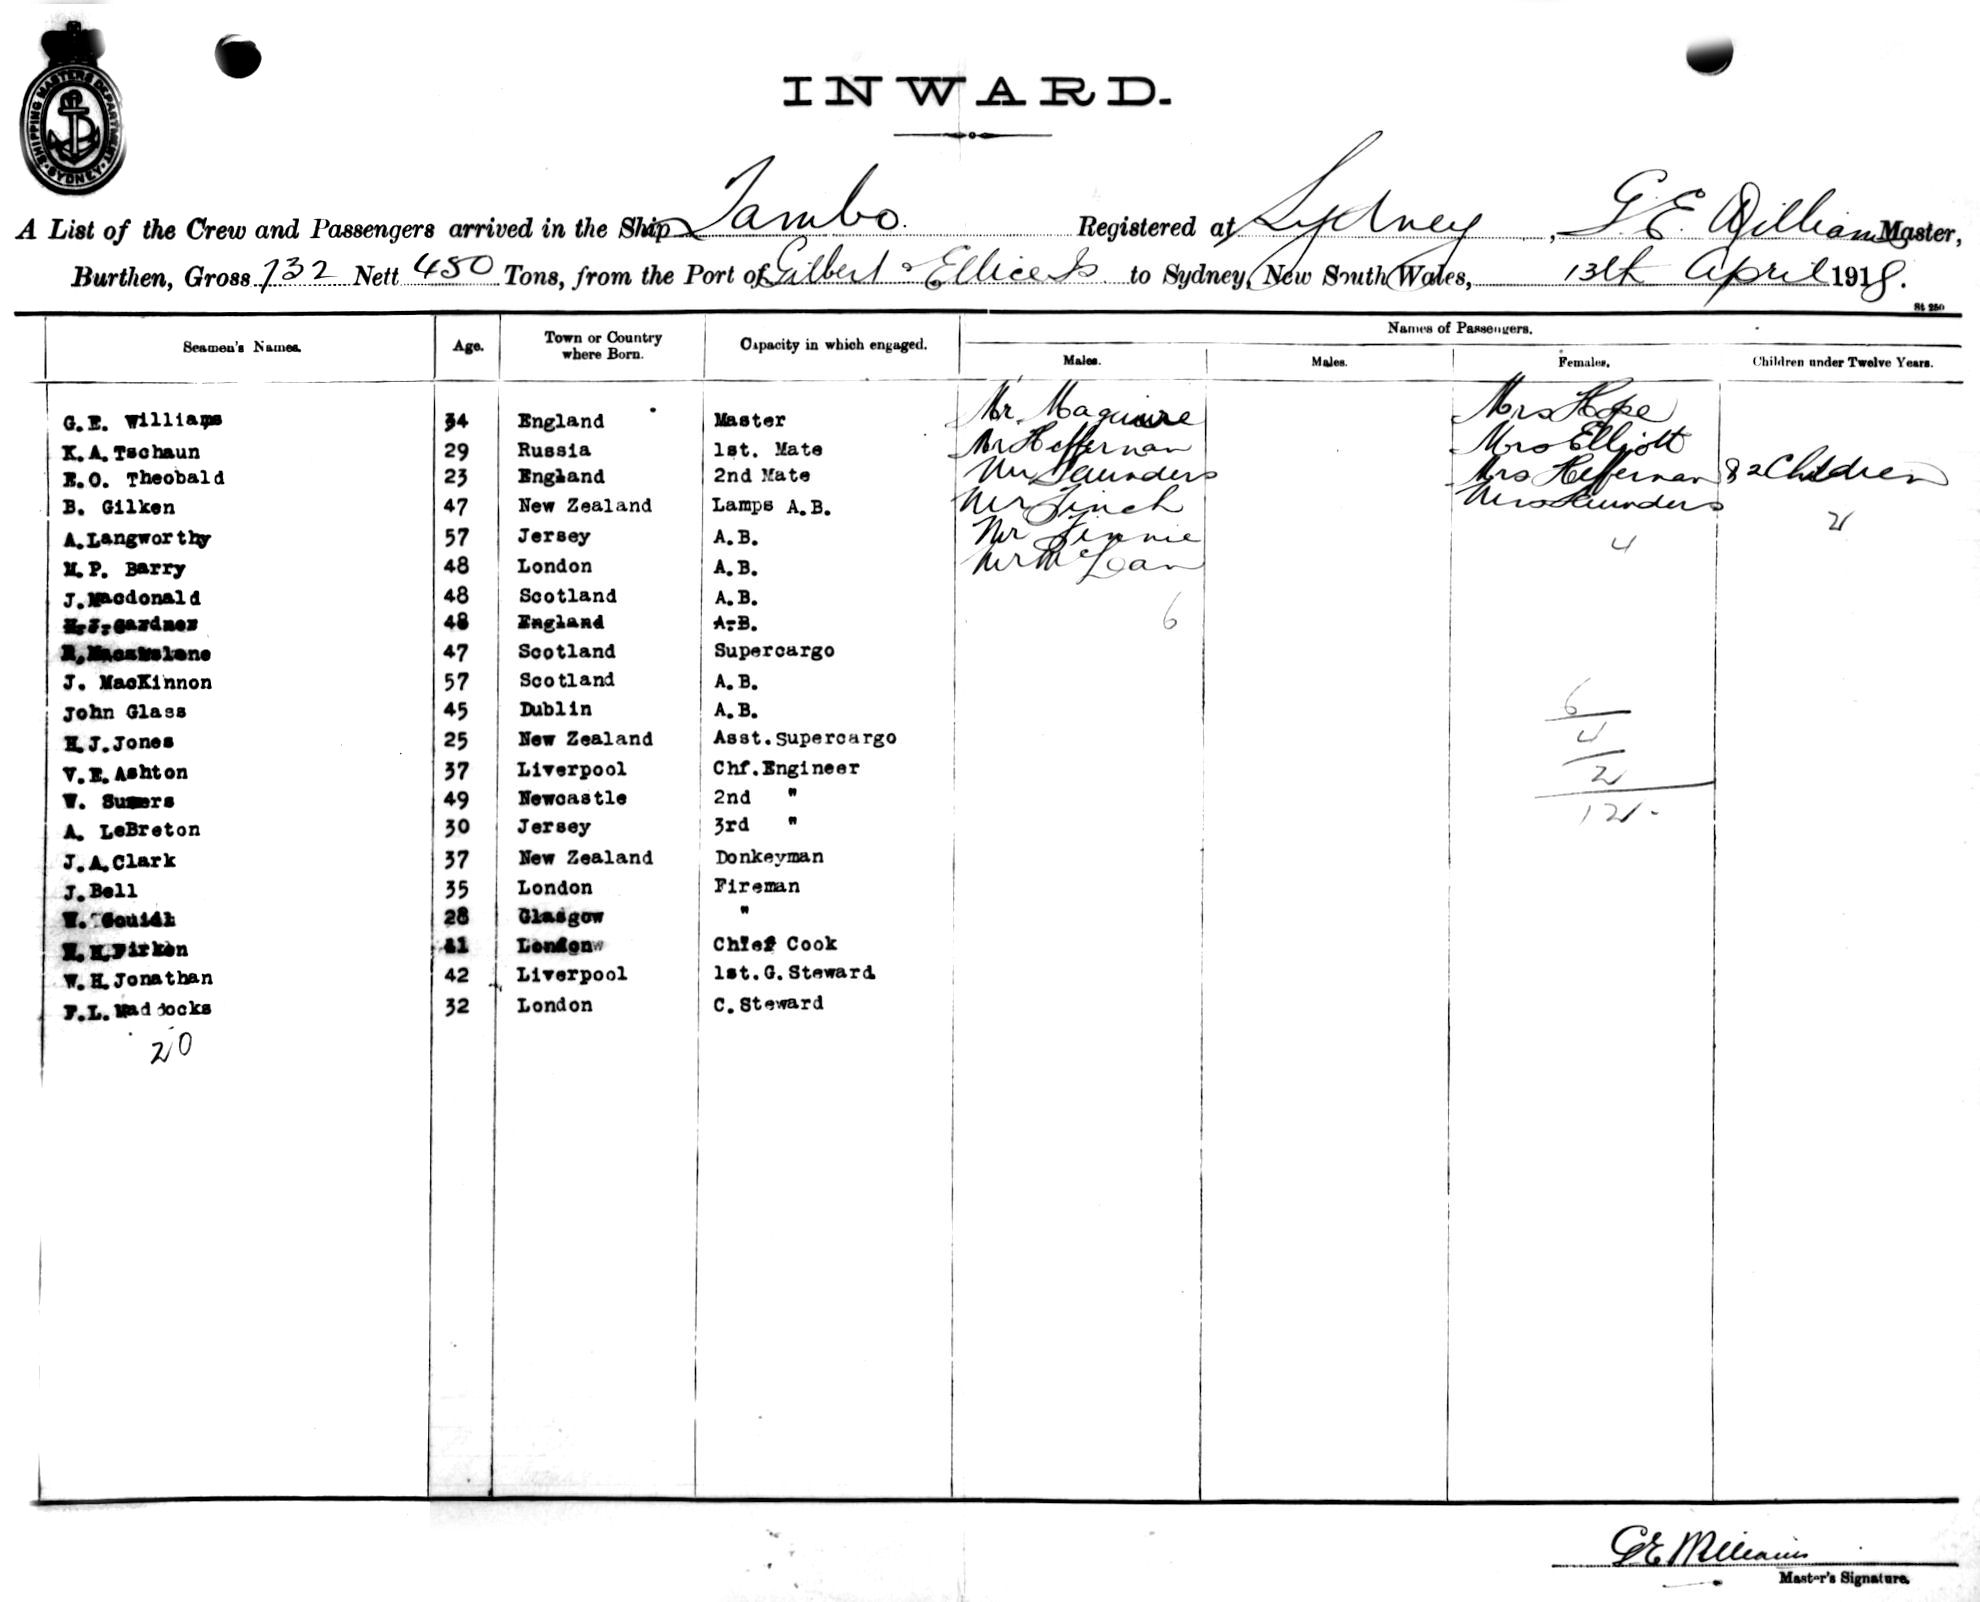 SHIPPING MASTERS DEPARTMENT
SYDNEY
INWARD.
A List of the Crew and Passengers arrived in the Ship Tambo. Registered at Sydney, G. E. Williams Master,
Burthen, Gross 732 Nett 450 Tons, from the Port of Gilbert & Ellice Is to Sydney, New South Wales, 13th April 1918.
St 250
Seamen's Names. Age. Town or Country where Born. Capacity in which engaged. Names of Passengers.
Males. Males. Females. Children under Twelve Years.
G.E. Williams 34 England Master Mr. Maguire Mrs Hope
K.A. Tschaun 29 Russia 1st. Mate Mr Heffernan Mrs Elliott
E.O. Theobald 23 England 2nd Mate Mr Saunders Mrs Heffernan & 2 Children
B. Gilken 47 New Zealand Lamps A.B. Mr Finch Mrs Saunders
2
A.Langworthy 57 Jersey A.B. Mr Finnie 4
M.P. Barry 48 London A.B. Mr McLean
J.Macdonald 48 Scotland A.B.
H.J.Gardner 48 England A.B. 6
47 Scotland Supercargo
J. MacKinnon 57 Scotland A.B.
John Glass 45 Dublin A.B. 6
H.J.Jones 25 New Zealand Asst.Supercargo 4
V.E.Ashton 37 Liverpool Chf.Engineer 2
W. Sumers 49 Newcastle 2nd " 12.
A. LeBreton 30 Jersey 3rd "
J.A.Clark 37 New Zealand Donkeyman
J.Bell 35 London Fireman
W. 28 Glasgow "
41 London Chief Cook
W.H.Jonathan 42 Liverpool 1st.G.Steward
F.L.Maddocks 32 London C.Steward
20
GE Williams
Master's Signature.